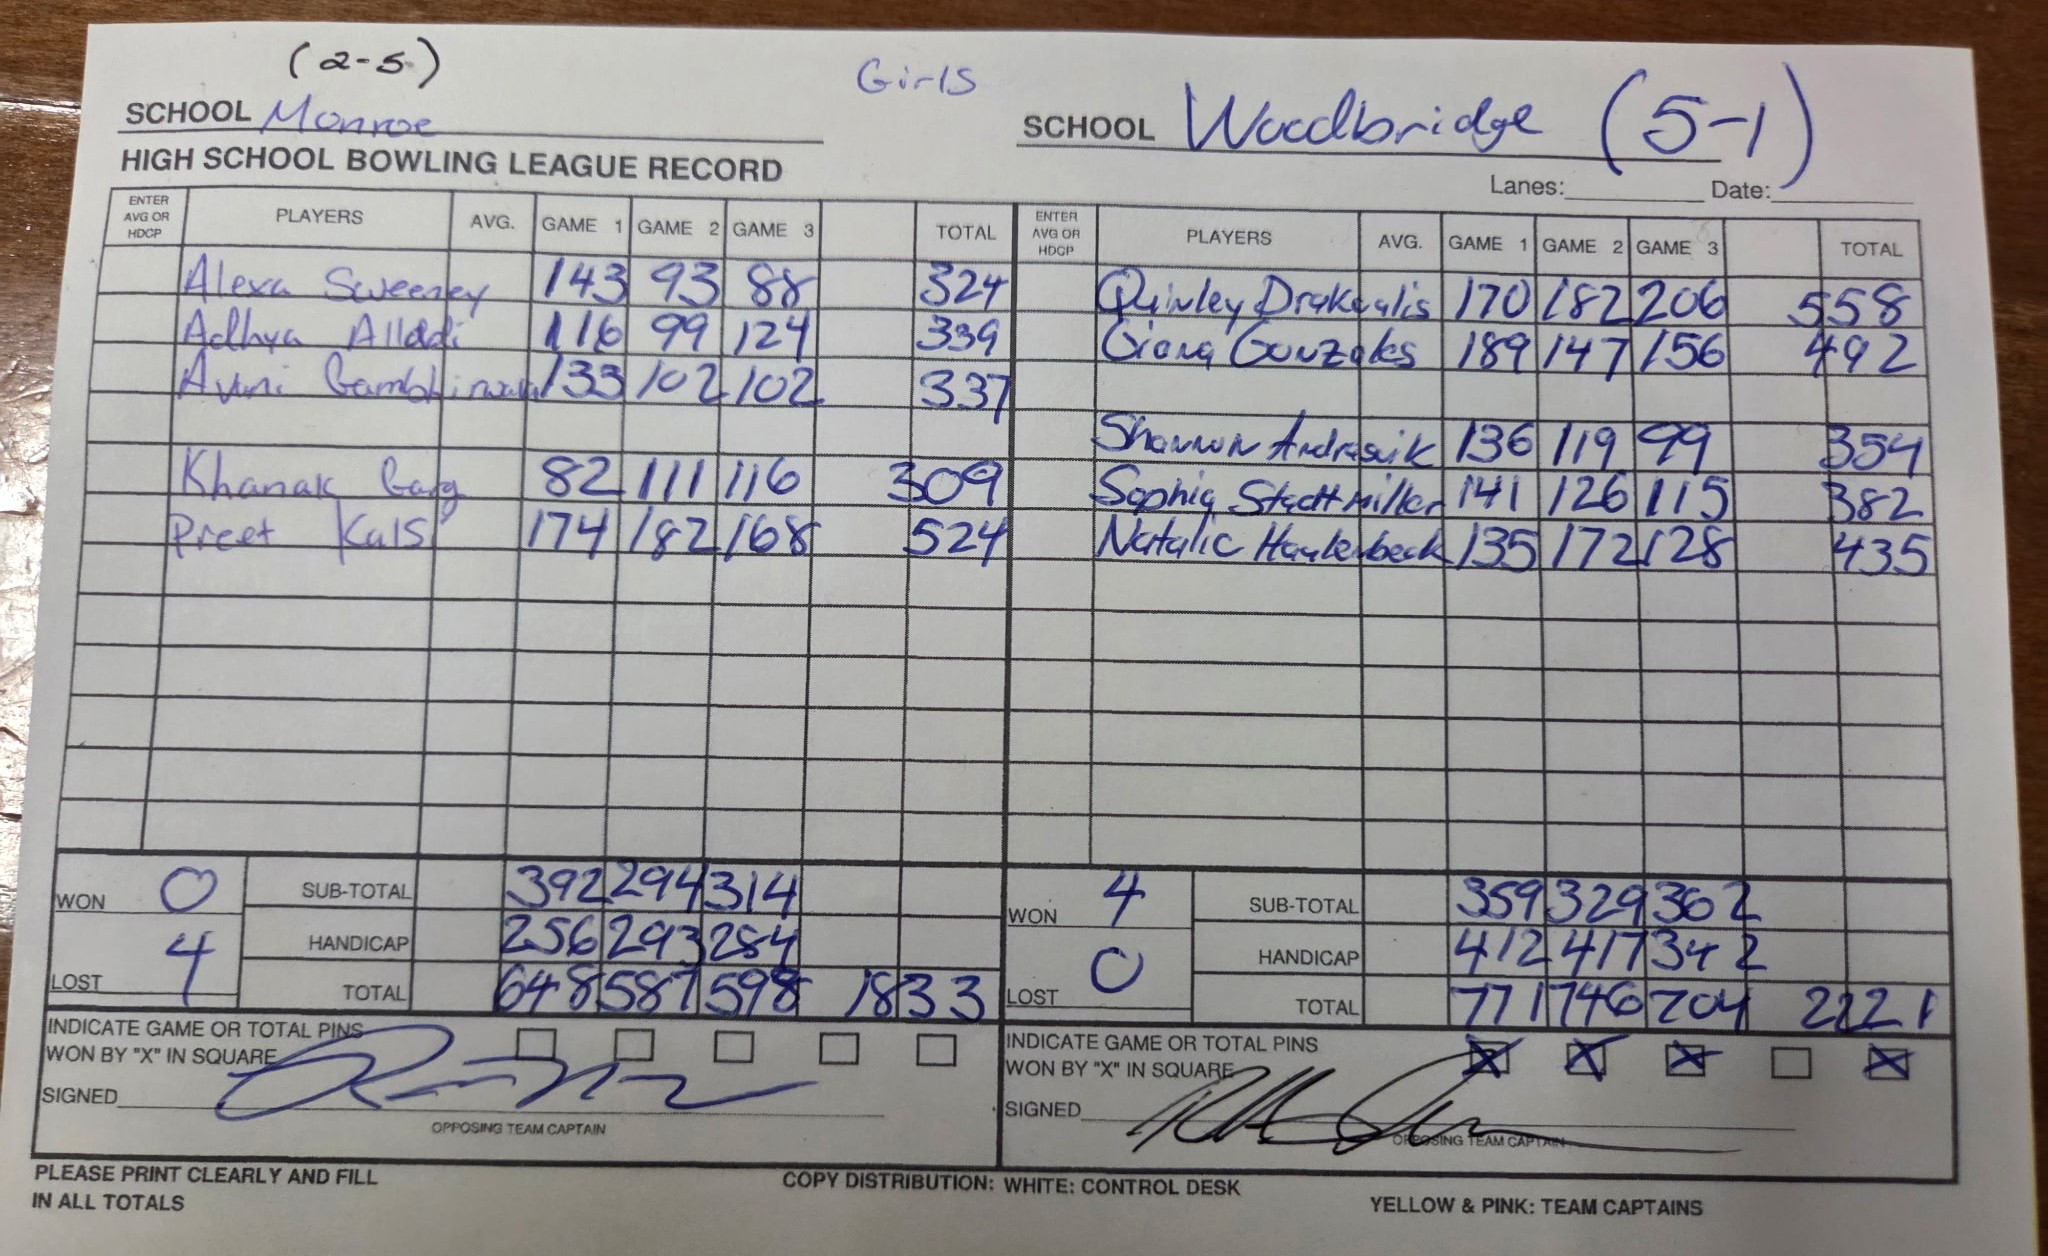 (2-5)
Girls
SCHOOL Monroe
SCHOOL Woodbridge (5-1)
HIGH SCHOOL BOWLING LEAGUE RECORD
Lanes: Date:
ENTER AVG OR HDCP PLAYERS AVG. GAME 1 GAME 2 GAME 3 TOTAL
Alexa Sweeney 143 93 88 324
Adhya Alladi 116 99 124 339
Avni 133 102 102 337
Khanak Garg 82 111 116 309
Preet Kals 174 182 168 524
WON 0 SUB-TOTAL 392 294 314
HANDICAP 256 293 284
LOST 4 TOTAL 648 587 598 1833
INDICATE GAME OR TOTAL PINS
WON BY "X" IN SQUARE
SIGNED
OPPOSING TEAM CAPTAIN
ENTER AVG OR HDCP PLAYERS AVG. GAME 1 GAME 2 GAME 3 TOTAL
Quinley Drakealis 170 182 206 558
Giana Gonzales 189 147 156 492
Shannon Andrasik 136 119 99 354
Sophia Stadtmiller 141 126 115 382
Natalie 135 172 128 435
WON 4 SUB-TOTAL 359 329 362
HANDICAP 412 417 342
LOST 0 TOTAL 771 746 704 2221
INDICATE GAME OR TOTAL PINS
WON BY "X" IN SQUARE X X X X
SIGNED
OPPOSING TEAM CAPTAIN
PLEASE PRINT CLEARLY AND FILL
IN ALL TOTALS
COPY DISTRIBUTION: WHITE: CONTROL DESK
YELLOW & PINK: TEAM CAPTAINS